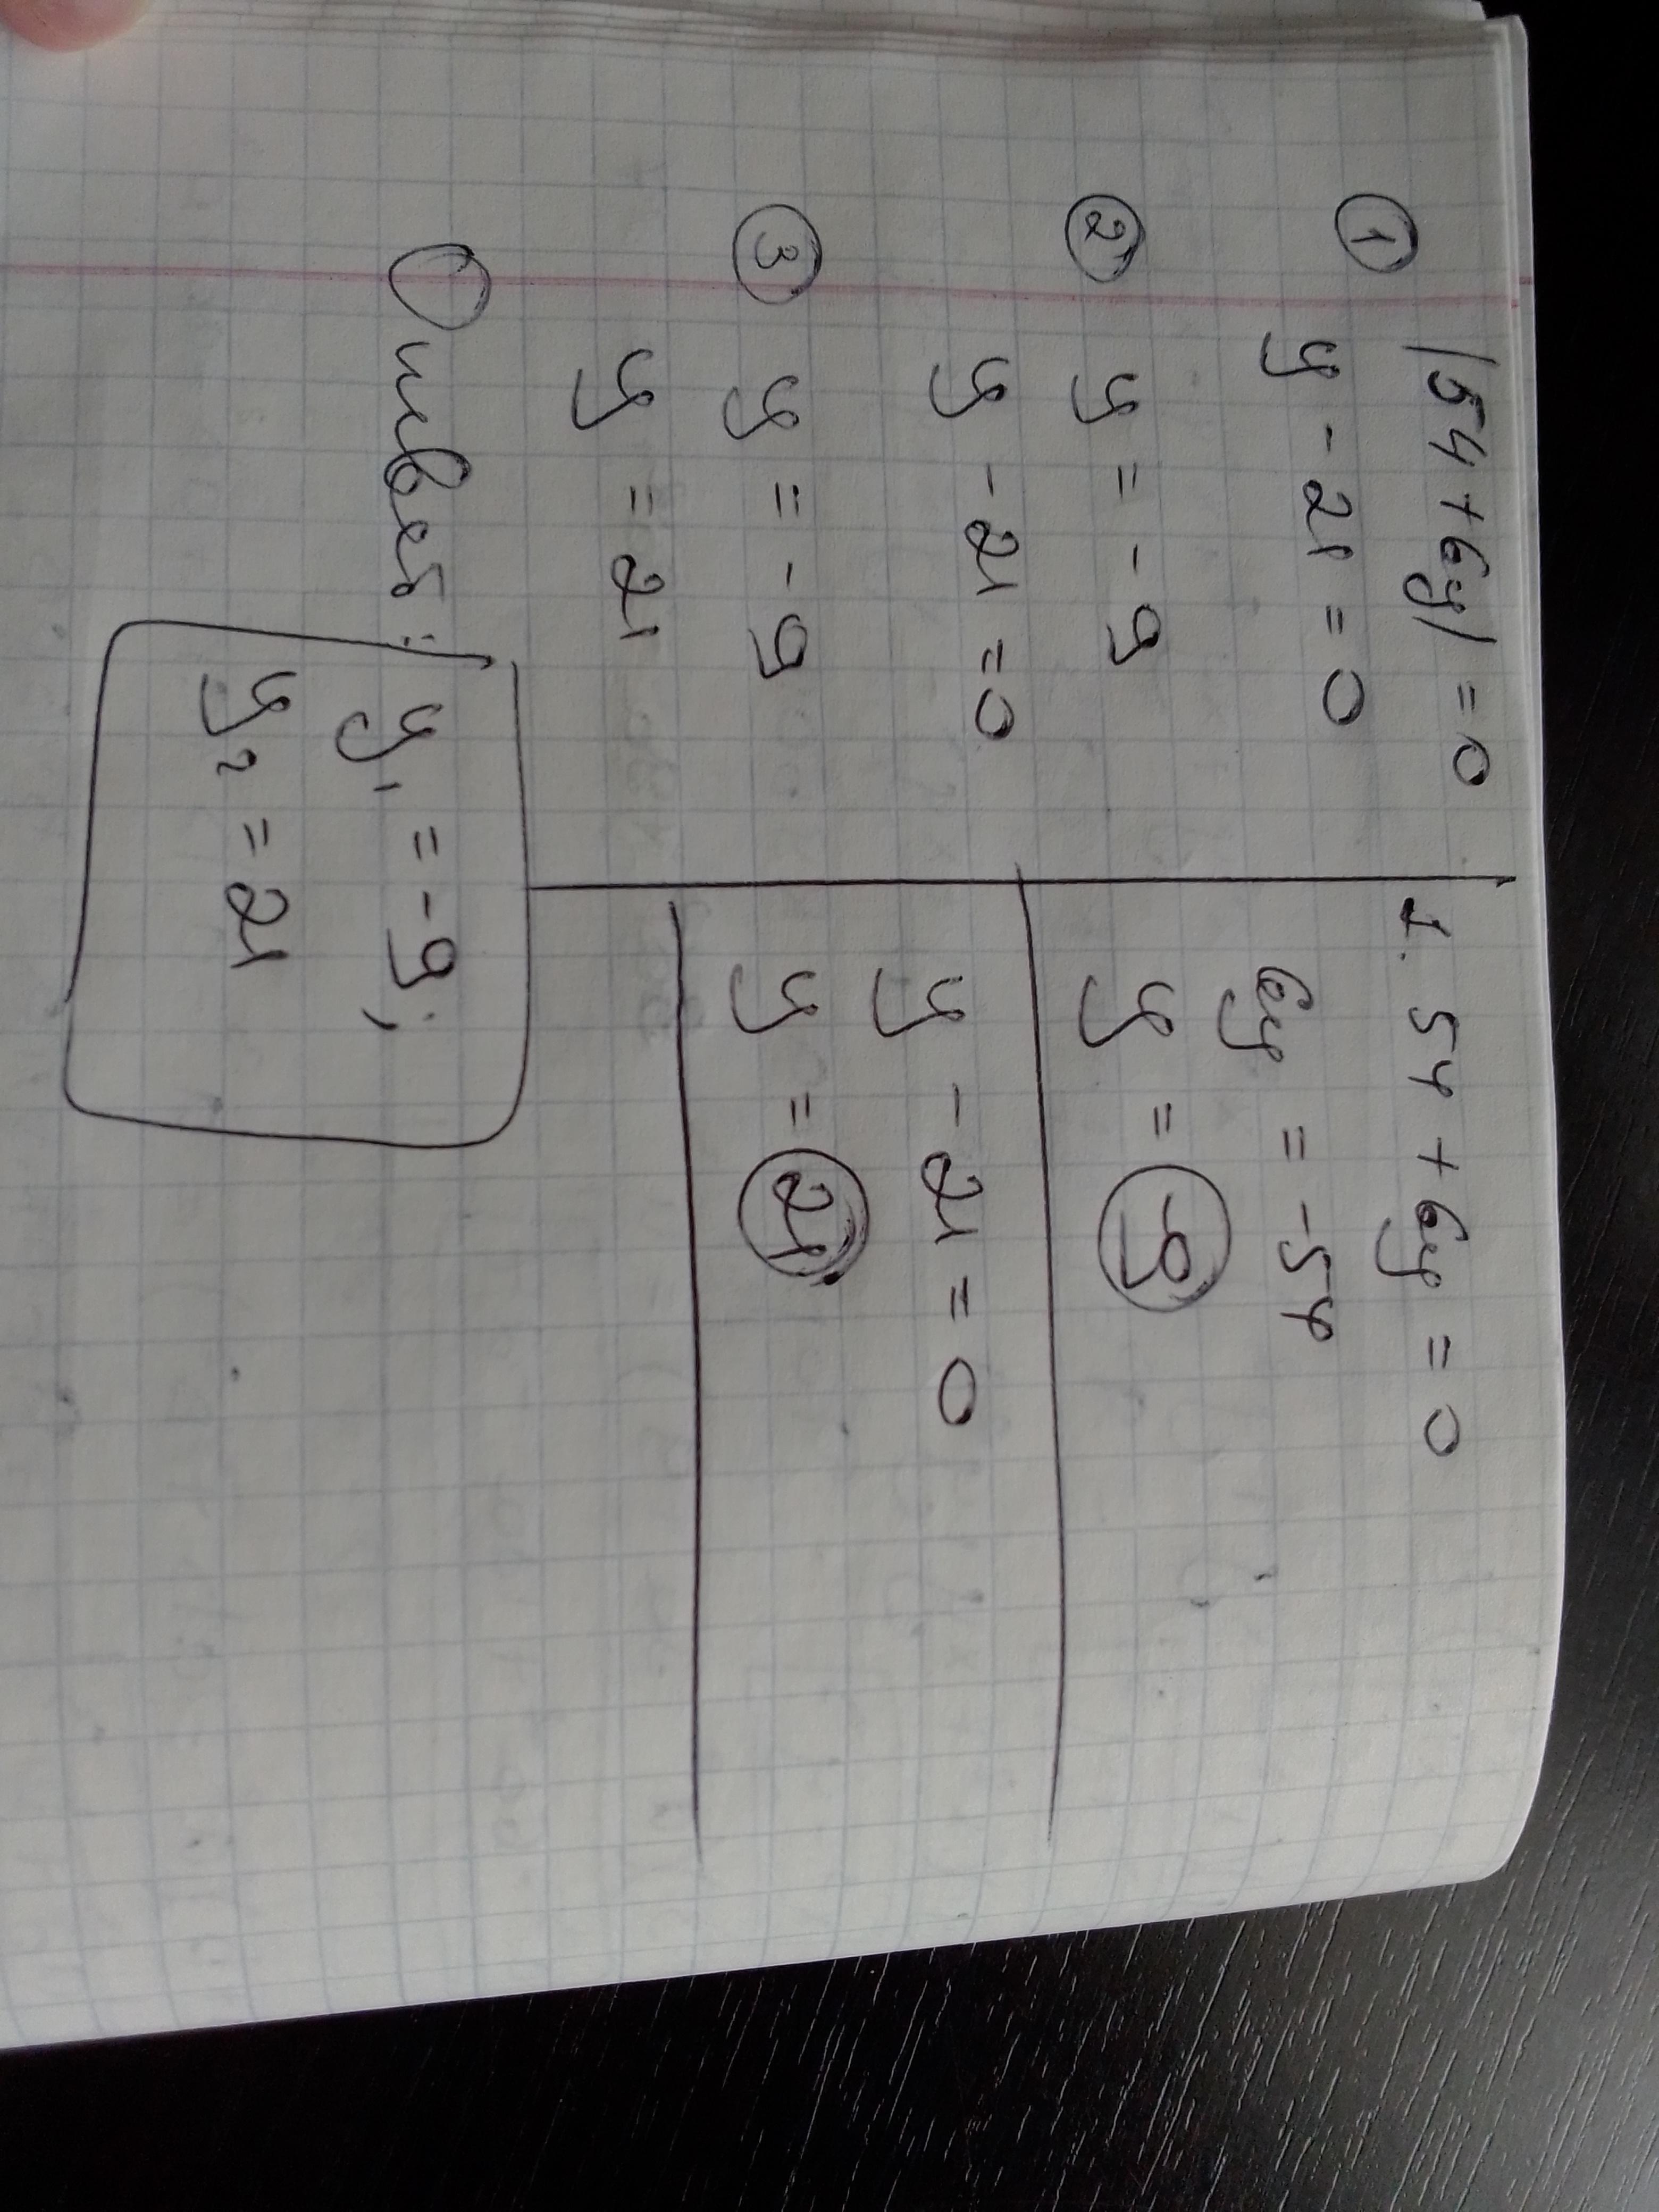 ① |54+6y|=0
y-21=0
② y=-9
y-21=0
③ y=-9
y=21
Ответ: y₁=-9;
y₂=21
1. 54+6y=0
6y=-54
y=-9
y-21=0
y=21